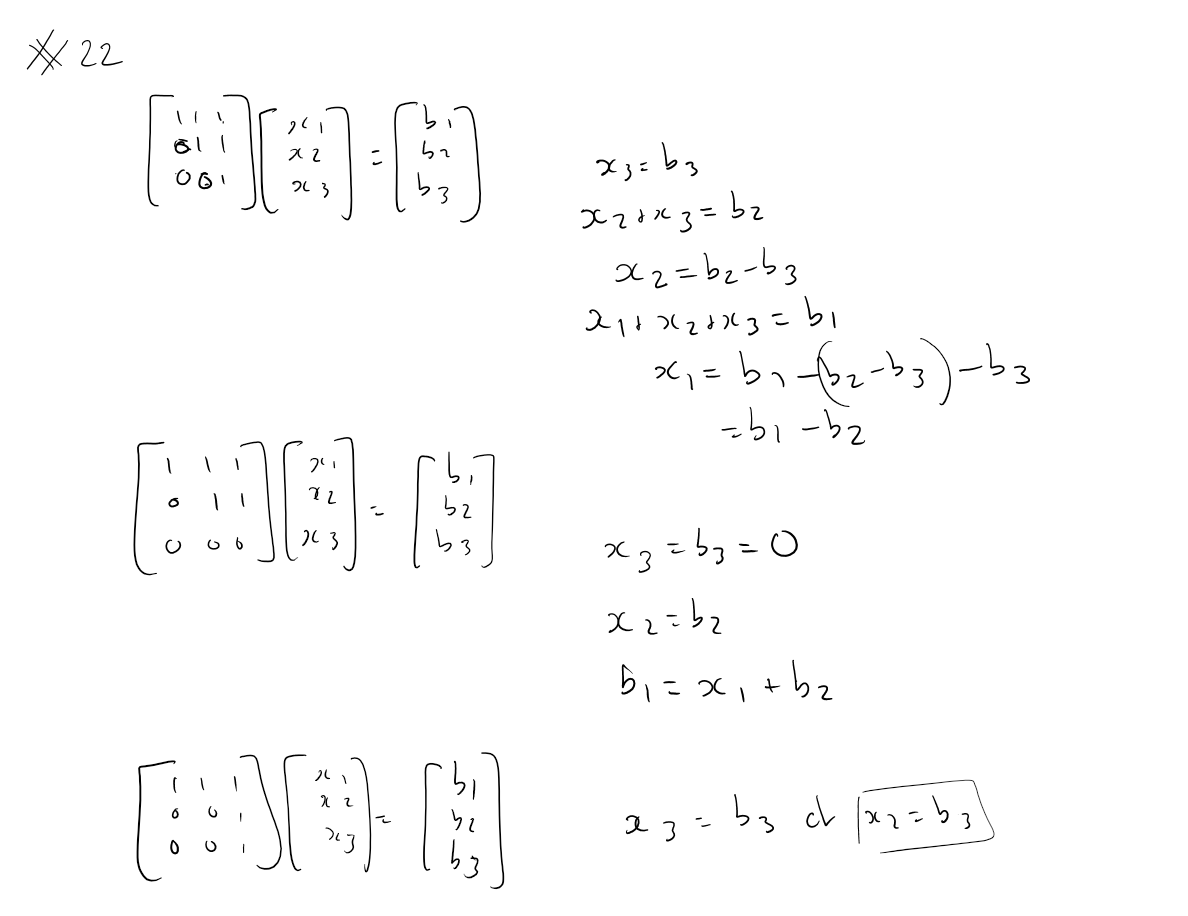 # 22
[1 1 1; 0 1 1; 0 0 1] [x1; x2; x3] = [b1; b2; b3]
x3 = b3
x2 + x3 = b2
x2 = b2 - b3
x1 + x2 + x3 = b1
x1 = b1 - (b2 - b3) - b3
= b1 - b2
[1 1 1; 0 1 1; 0 0 0] [x1; x2; x3] = [b1; b2; b3]
x3 = b3 = 0
x2 = b2
b1 = x1 + b2
[1 1 1; 0 0 1; 0 0 1] [x1; x2; x3] = [b1; b2; b3]
x3 = b3
x2 = b3